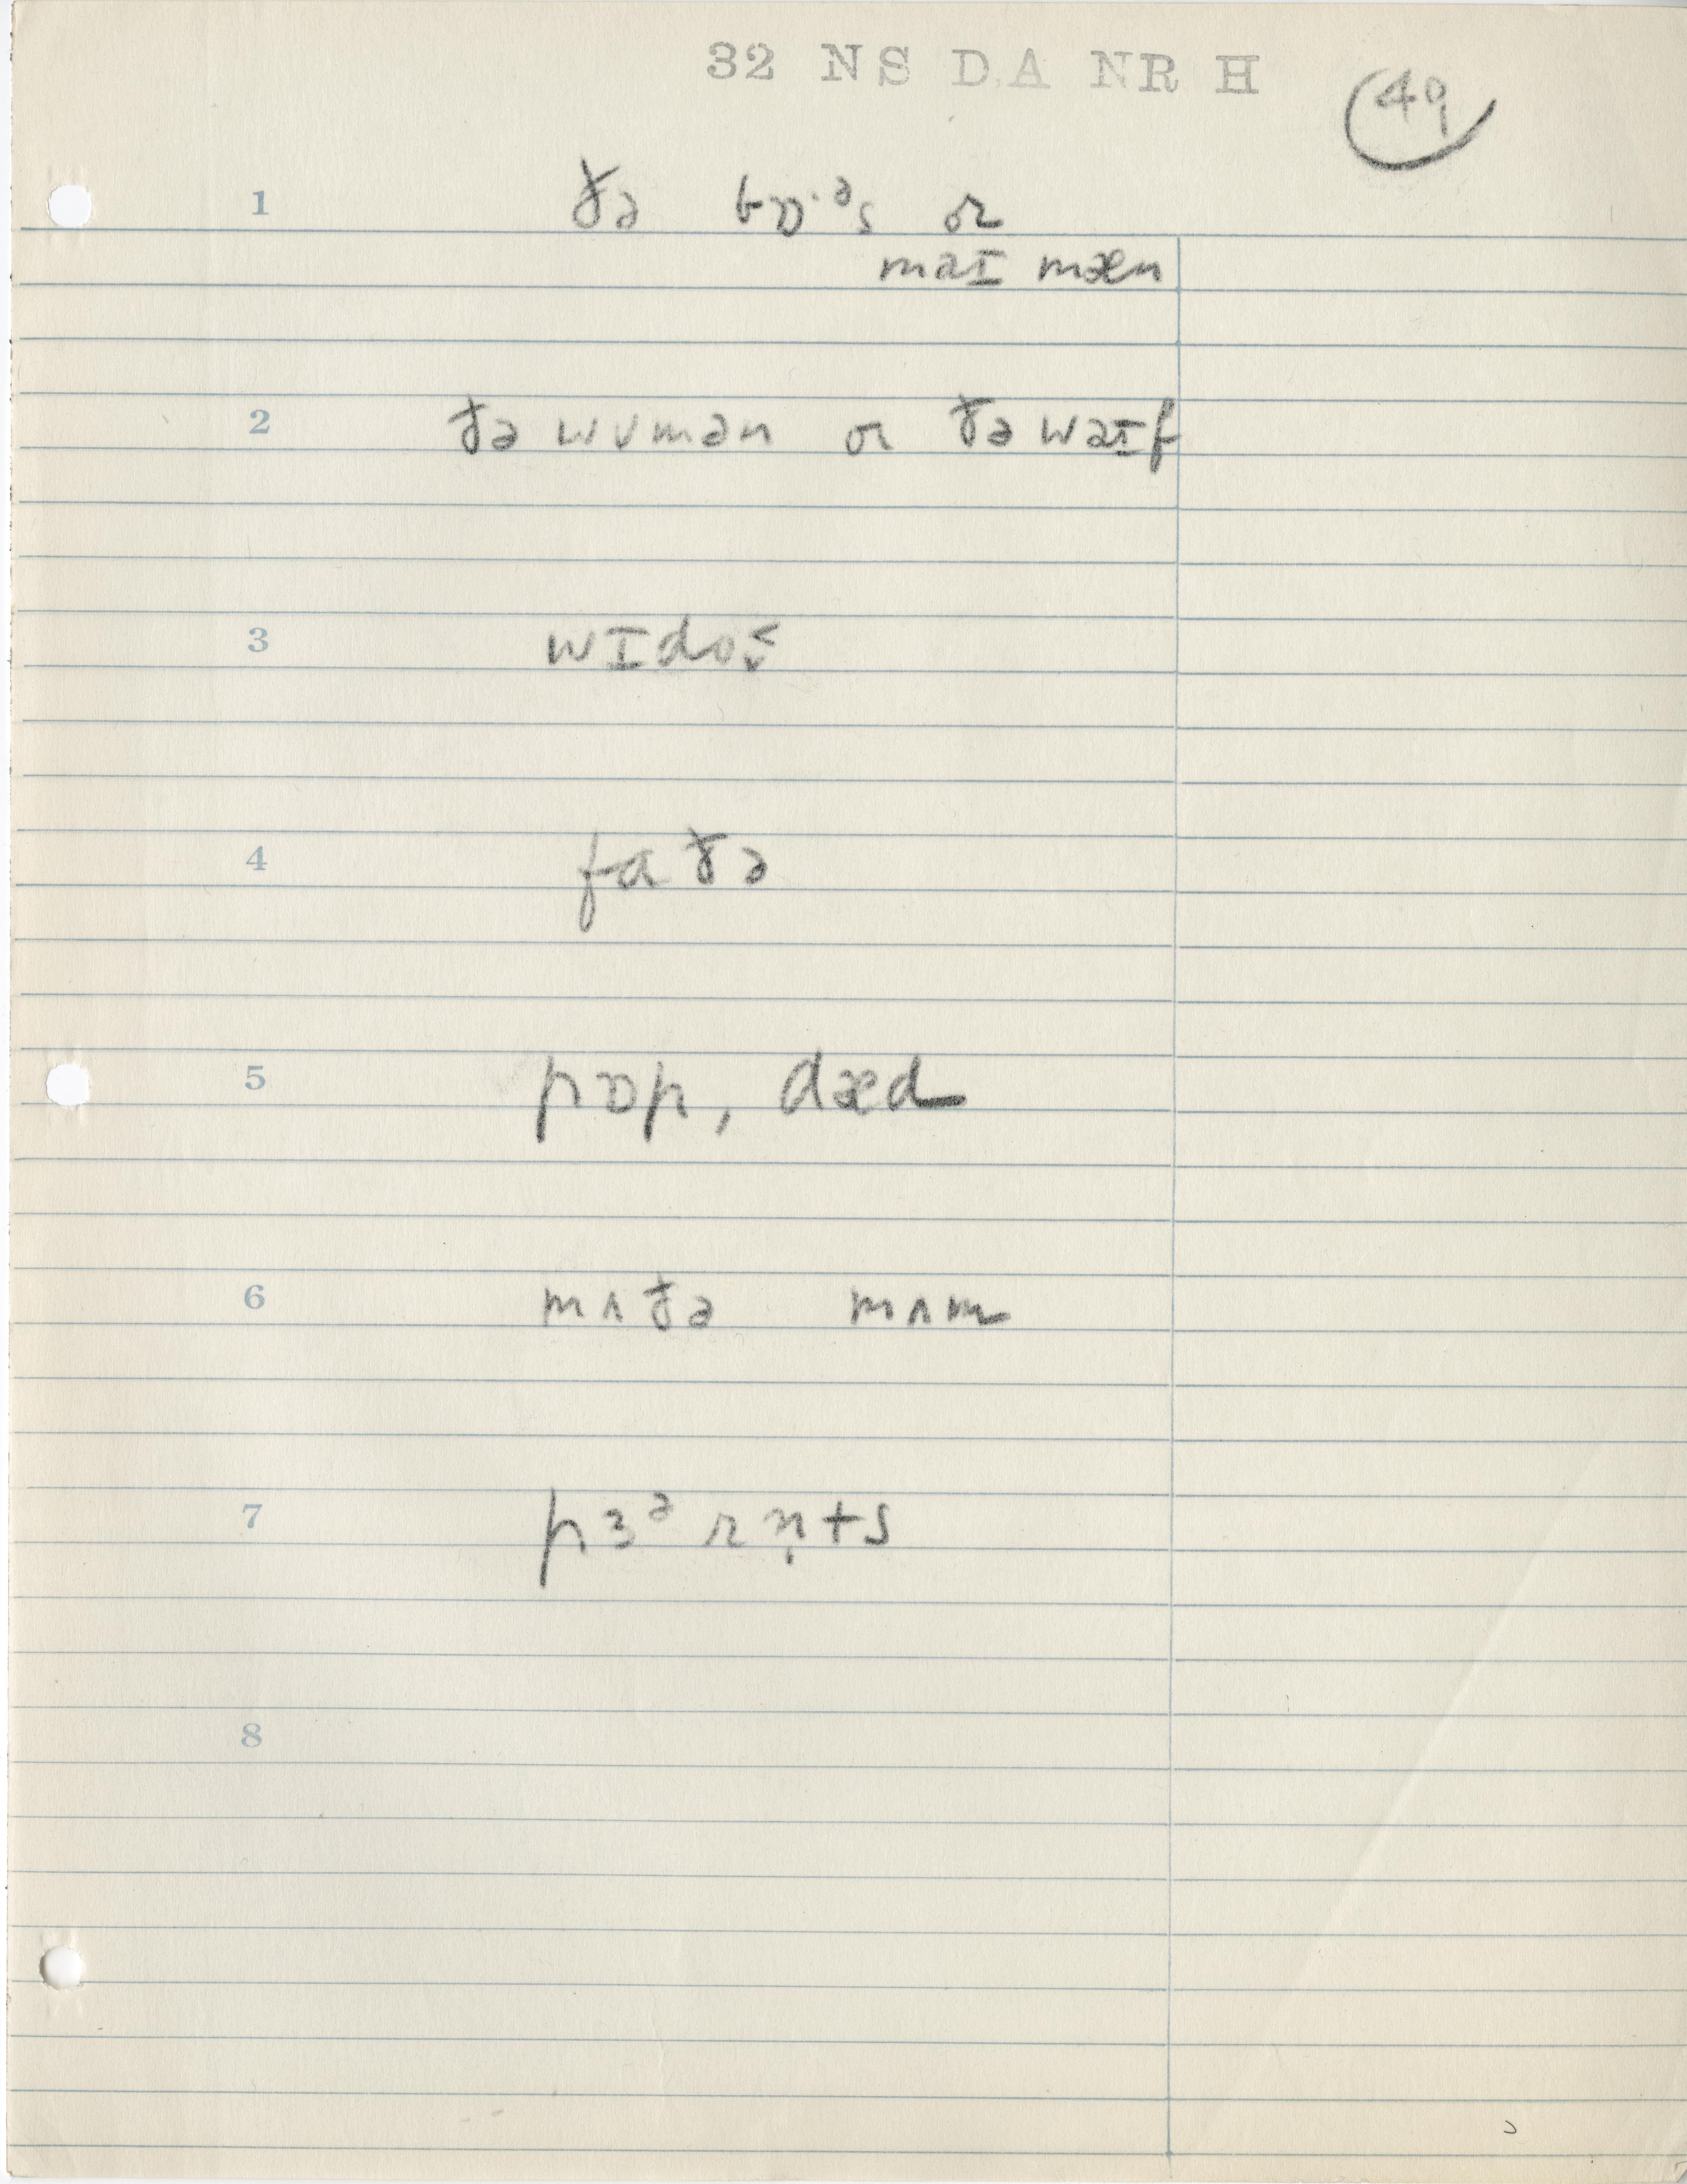 32 NS DA NR H
49
1 ðə bɒ·ᵊs or
maɪ mæn
2 ðə wʊmən or ðə waɪf
3 wɪdoʊ̯
4 faðə
5 pɒp, dæd
6 mʌðə mʌm
7 pɜᵊrn̩ts
8